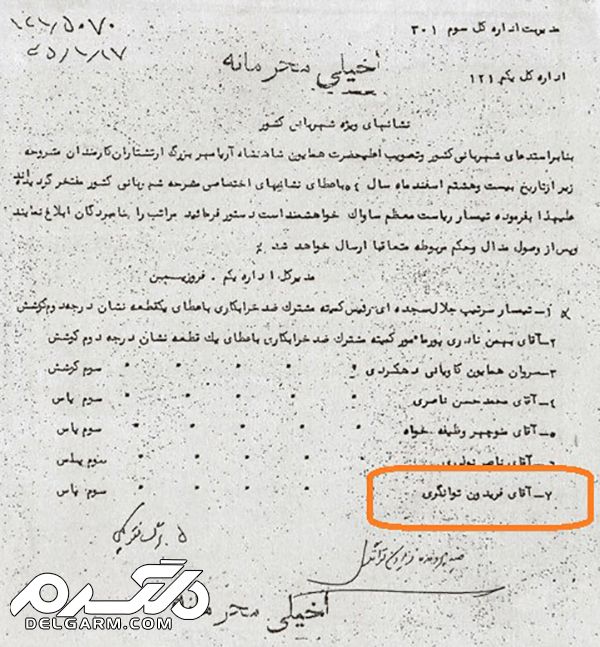 ۱۲۱/۵۰۷۰
مدیریت اداره کل سوم ۳۰۱
اخیلی محرمانه
اداره کل یکم ۱۲۱
نشانهای ویژه شهربانی کشور
بنابراستدعای شهربانی کشور وتصویب اعلیحضرت همایون شاهنشاه آریامهر بزرگ ارتشتاران کارمندان مشروحه
زیر ازتاریخ بیست وهشتم اسفند ماه سال باعطای نشانهای اختصاصی مشرحه شهربانی کشور مفتخر گردیده اند
علیهذا بفرموده تیمسار ریاست معظم ساواک خواهشمند است دستور فرمائید مراتب را بنامبردگان ابلاغ نمایند
وپس از وصول مدال وحکم مربوطه متعاقبا ارسال خواهد شد
مدیرکل اداره یکم . فروزیمین
۱- تیمسار سرتیپ جلال سجده ای رئیس کمیته مشترک ضد خرابکاری باعطای یکقطعه نشان درجه دوم کوشش
۲- آقای بهمن نادری پور مامور کمیته مشترک ضد خرابکاری باعطای یک قطعه نشان درجه دوم کوشش
۳- سروان همایون کاویانی دهکردی " " " " " سوم کوشش
۴- آقای محمد حسن ناصری " " " " " سوم پاس
۵- آقای منوچهر وظیفه خواه " " " " " سوم پاس
۶- آقای ناصر نوذری " " " " " سوم پاس
۷- آقای فریدون توانگری " " " " سوم پاس
اخیلی محرمانه
دلگرم
DELGARM.COM